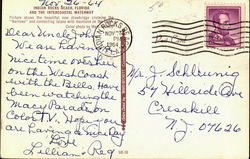 Nov 26-64
INDIAN ROCKS BEACH, FLORIDA
AND THE INTERCOASTAL WATERWAY
Picture above the beautiful new drawbridge crossing the
"Narrows" and connecting island with mainland
Dear Uncle John
We are having a
nice time over here
on the West Coast
with the Bells. Have
been watching the
Macy Parade on
Color T.V. Hope you
are having a nice Day
Love
Lillian & Reg
NOV
1964
Mr. J. Schleunig
57 Hillside Ave
Cresskill
N.J. 07626